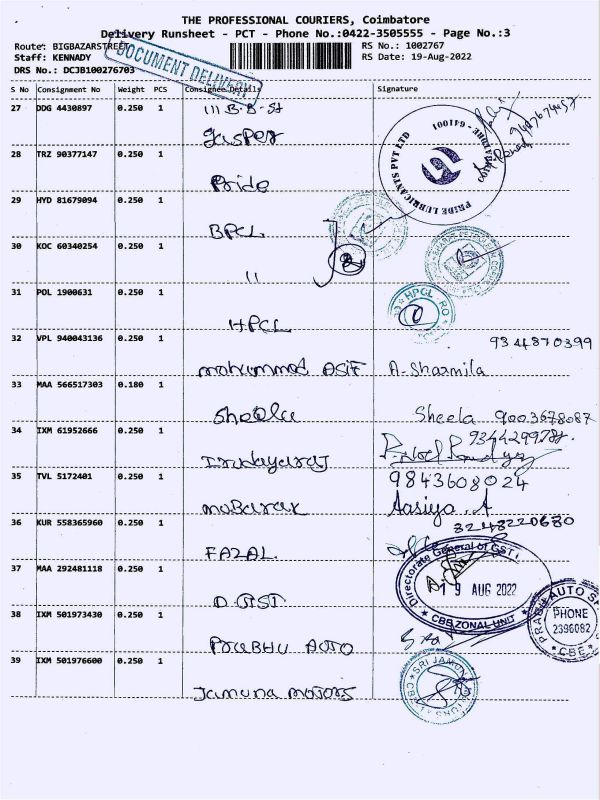 THE PROFESSIONAL COURIERS, Coimbatore
Delivery Runsheet - PCT - Phone No.:0422-3505555 - Page No.:3
Route: BIGBAZARSTREET
RS No.: 1002767
Staff: KENNADY
RS Date: 19-Aug-2022
DRS No.: DCJB100276703
DOCUMENT DELIVERY
S No Consignment No Weight PCS Consignee Details Signature
27 DDG 4430897 0.250 1
111 B-B-St
Jasper
28 TRZ 90377147 0.250 1
PRIDE LUBRICANTS PVT LTD
COIMBATORE - 641001
Pride
29 HYD 81679094 0.250 1
BPCL
30 KOC 60340254 0.250 1
11
2
31 POL 1900631 0.250 1
HPCL - RO
HPCL
32 VPL 940043136 0.250 1
9344870399
mohummod ASIF A-Sharmila
33 MAA 566517303 0.180 1
Sheela Sheela 9003678087
34 IXM 61952666 0.250 1
Irudayaraj
35 TVL 5172401 0.250 1
9843608024
mubarak Aasiya .A
36 KUR 558365960 0.250 1
8248220680
FAZAL
37 MAA 292481118 0.250 1
Directorate General of GSTI
19 AUG 2022
CBE ZONAL UNIT
D.GST
38 IXM 501973430 0.250 1
PRABHU AUTO
PHONE
2396082
CBE
PRABHU AUTO
39 IXM 501976600 0.250 1
SRI JAMUNA MOTORS
Jamuna motors